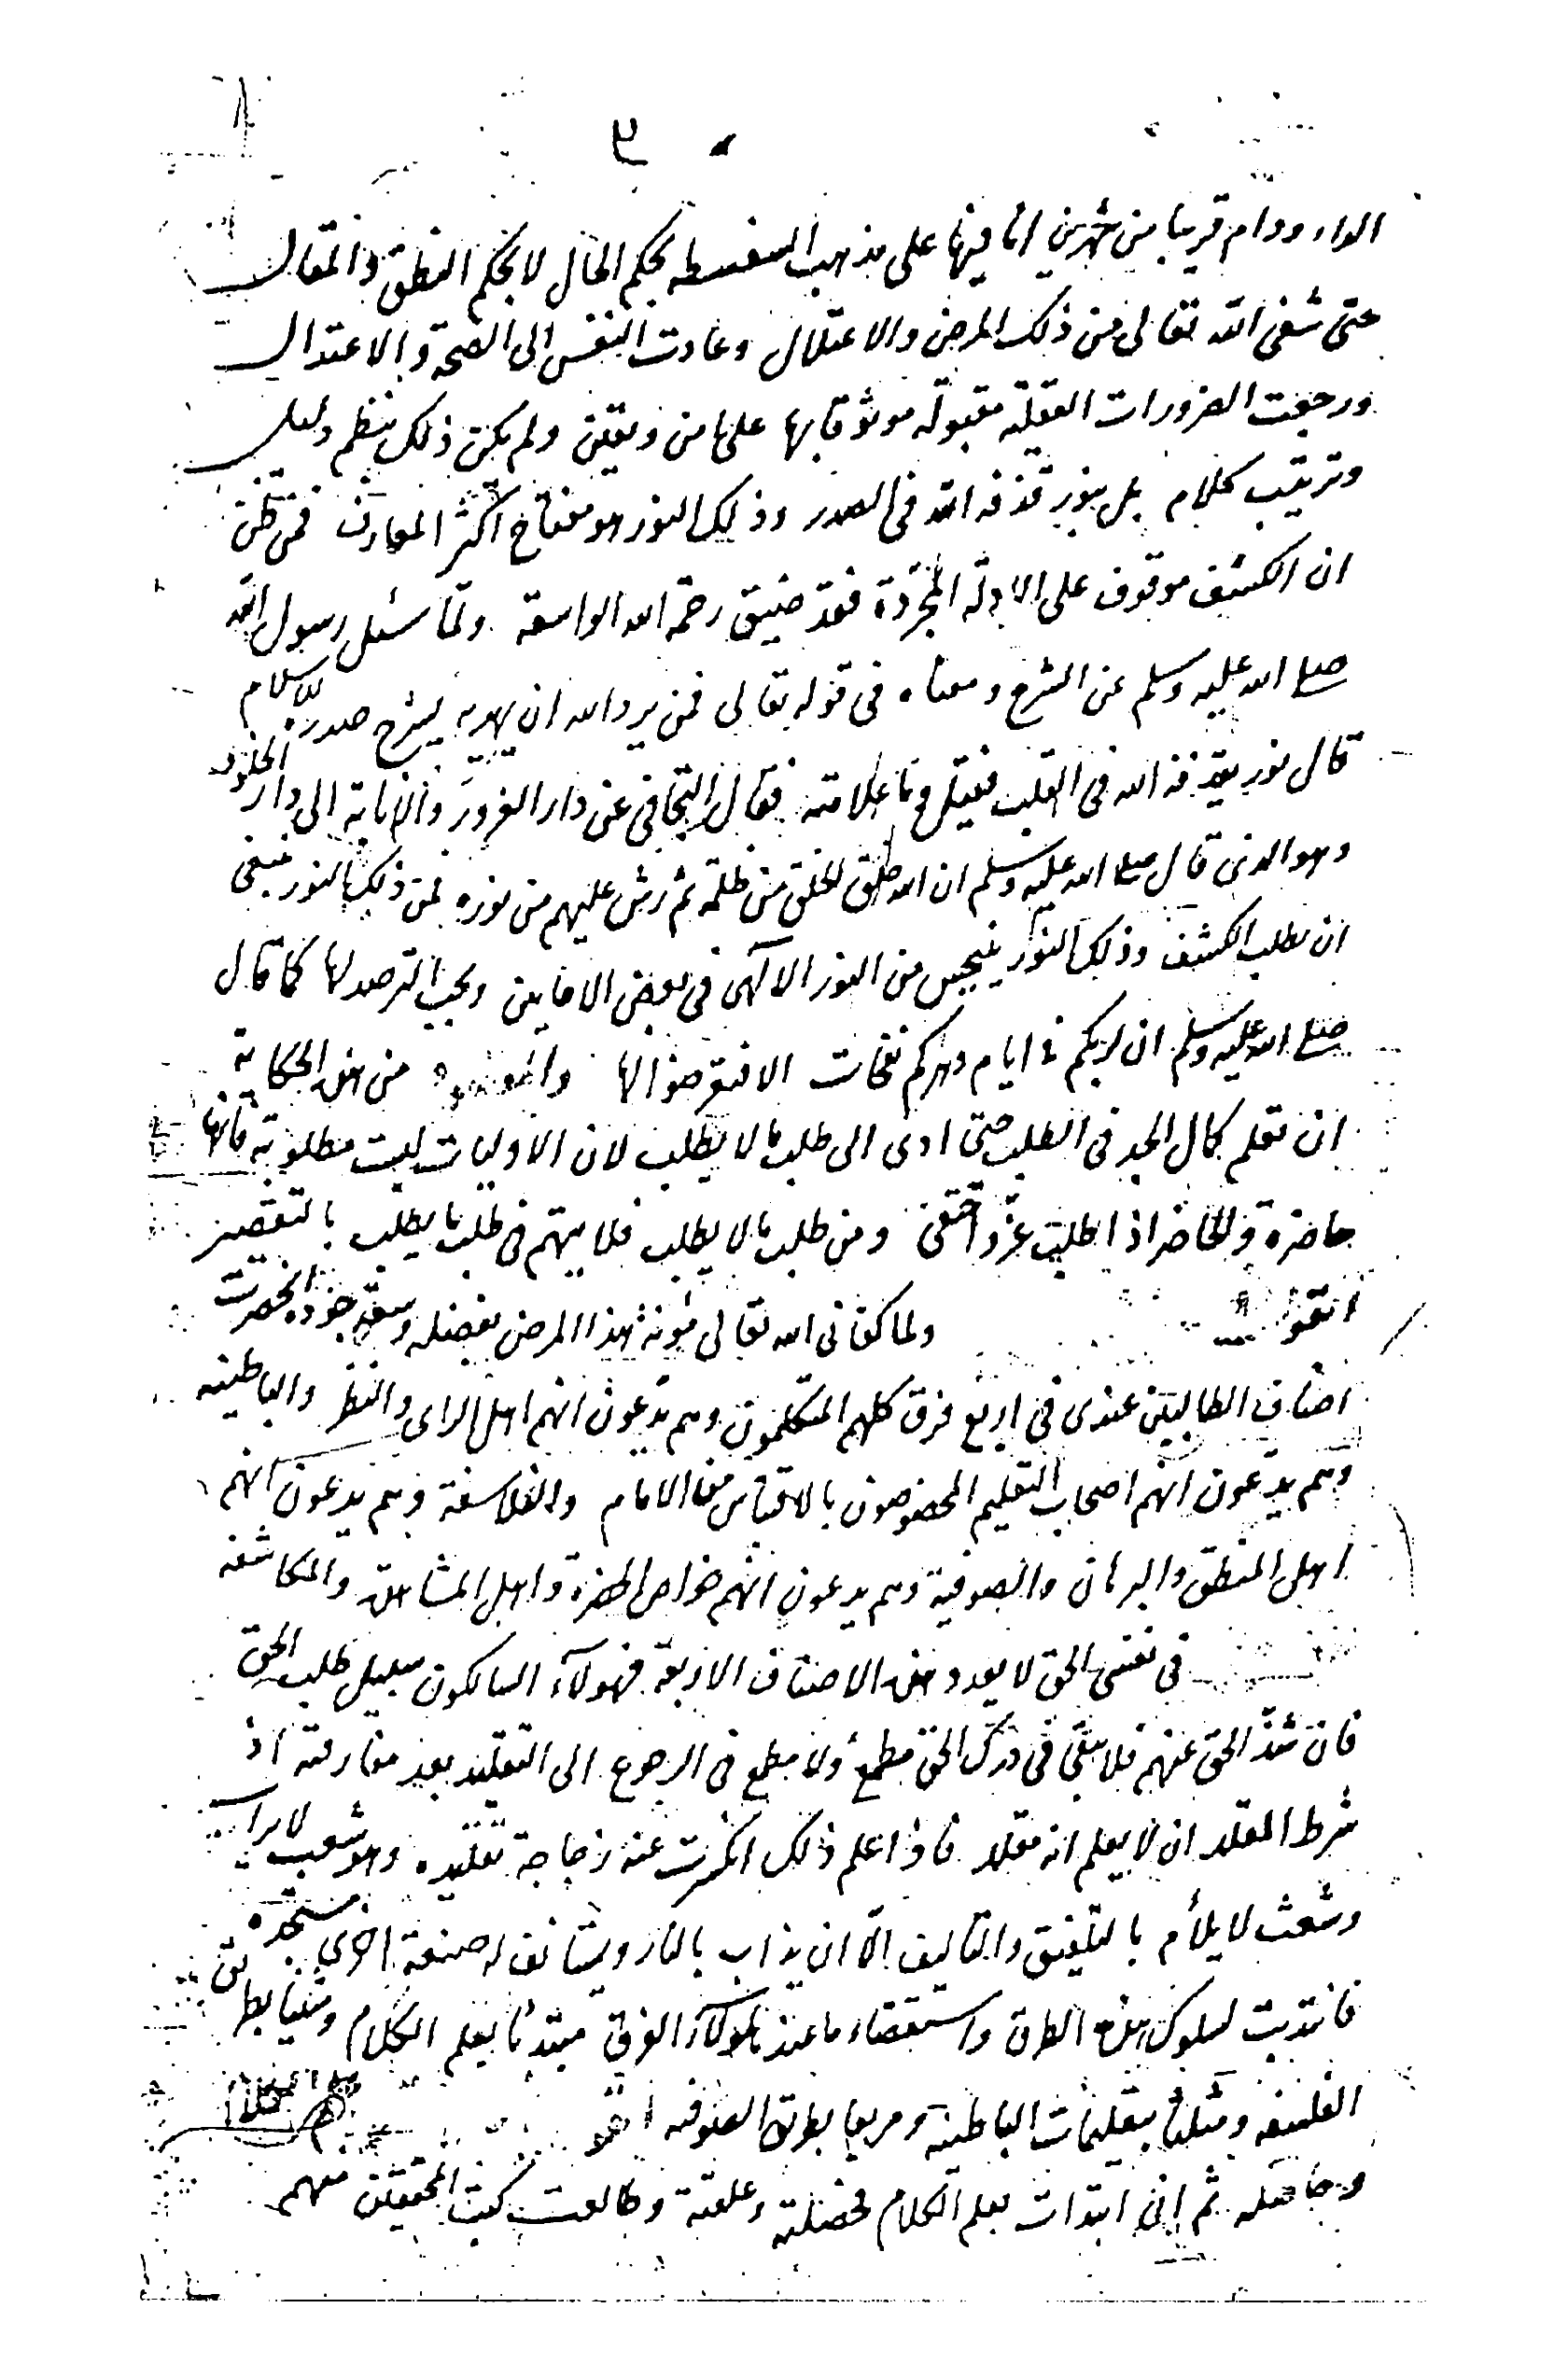 ٣
الداء ودام قريبا من شهرين انا فيها على مذهب السفسطه بحكم الحال لا بحكم النطق والمقال
حتى شفى الله تعالى من ذلك المرض والاعتلال وعادت النفس الى الصحة والاعتدال
ورجعت الضرورات العقلية مقبولة موثوقا بها على امن ويقين ولم يكن ذلك بنظم دليل
وترتيب كلام بل بنور قذفه الله فى الصدر وذلك النور هو مفتاح اكثر المعارف فمن ظن
ان الكشف موقوف على الادلة المجردة فقد ضيق رحمة الله الواسعة ولما سئل رسول الله
صلى الله عليه وسلم عن الشرح ومعناه فى قوله تعالى فمن يرد الله ان يهديه يشرح صدره للاسلام
قال نور يقذفه الله فى القلب فقيل وما علامته فقال التجافى عن دار الغرور والانابة الى دار الخلود
وهو الذى قال صلى الله عليه وسلم ان الله خلق الخلق من ظلمة ثم رش عليهم من نوره فمن ذلك النور ينبغى
ان يطلب الكشف وذلك النور ينبجس من النور الالهى فى بعض الاحايين ويجب الترصد لها كما قال
صلى الله عليه وسلم ان لربكم فى ايام دهركم نفحات الا فتعرضوا لها والمقصود من هذه الحكاية
ان تعلم كمال الجد فى الطلب حتى ادى الى طلب ما لا يطلب لان الاوليات ليست مطلوبة فانها
حاضرة والحاضر اذا طلب عز واختفى ومن طلب ما لا يطلب فلا يتهم فى طلب ما يطلب بالتقصير
ولما كفانى الله تعالى مؤنة هذا المرض بفضله وسعة جوده انحصرت
اصناف الطالبين عندى فى اربع فرق كلهم المتكلمون وهم يدعون انهم اهل الراى والنظر والباطنيه
وهم يدعون انهم اصحاب التعليم المخصوصون بالاقتباس من الامام والفلاسفة وهم يدعون انهم
اهل المنطق والبرهان والصوفية وهم يدعون انهم خواص الحضرة واهل المشاهدة والمكاشفه
فى نفسى الحق لا يعدو هذه الاصناف الاربعة فهولآء السالكون سبيل طلب الحق
فان شذ الحق عنهم فلا يبقى فى درك الحق مطمع ولا مطمع فى الرجوع الى التقليد بعد مفارقته اذ
شرط المقلد ان لا يعلم انه مقلد فاذا علم ذلك انكسرت عنه زجاجة تقليده وهو شعب لا يراب
وشعث لا يلأم بالتلفيق والتاليف الا ان يذاب بالنار ويستانف له صنعة اخرى مستجده
فابتدرت لسلوك هذه الطرق واستقصاء ما عند هولآء الفرق مبتدئا بعلم الكلام ومثنيا بطريق
الفلسفه ومثلثا بتعليمات الباطنية ومربعا بطريق الصوفيه
وحاصله ثم انى ابتدات بعلم الكلام فحصلته وعلقته وطالعت كتب المحققين منهم